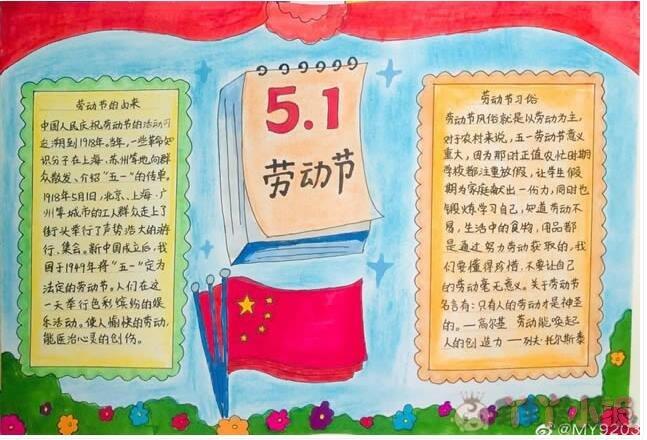 劳动节的由来
中国人民庆祝劳动节的活动可
追溯到1918年。当年，一些革命知
识分子在上海、苏州等地向群
众散发、介绍“五一”的传单。
1918年5月1日，北京、上海、广
州等城市的工人群众走上了
街头举行了声势浩大的游
行、集会。新中国成立后，我
国于1949年将“五一”定为
法定的劳动节。人们在这
一天举行色彩缤纷的娱
乐活动。使人愉快的劳动，
能医治心灵的创伤。
5.1
劳动节
劳动节习俗
劳动节风俗就是以劳动为主，
对于农村来说，五一劳动节意义
重大，因为那时正值农忙时期
学校都注重放假，让学生假
期为家庭献出一份力，同时也
锻炼学习自己，知道劳动不
易，生活中的食物，用品都
是通过努力劳动获取的，我
们要懂得珍惜，不要让自己
的劳动毫无意义。关于劳动节
名言有：只有人的劳动才是神圣
的。—高尔基 劳动能唤起
人的创造力 —列夫·托尔斯泰
@MY9203